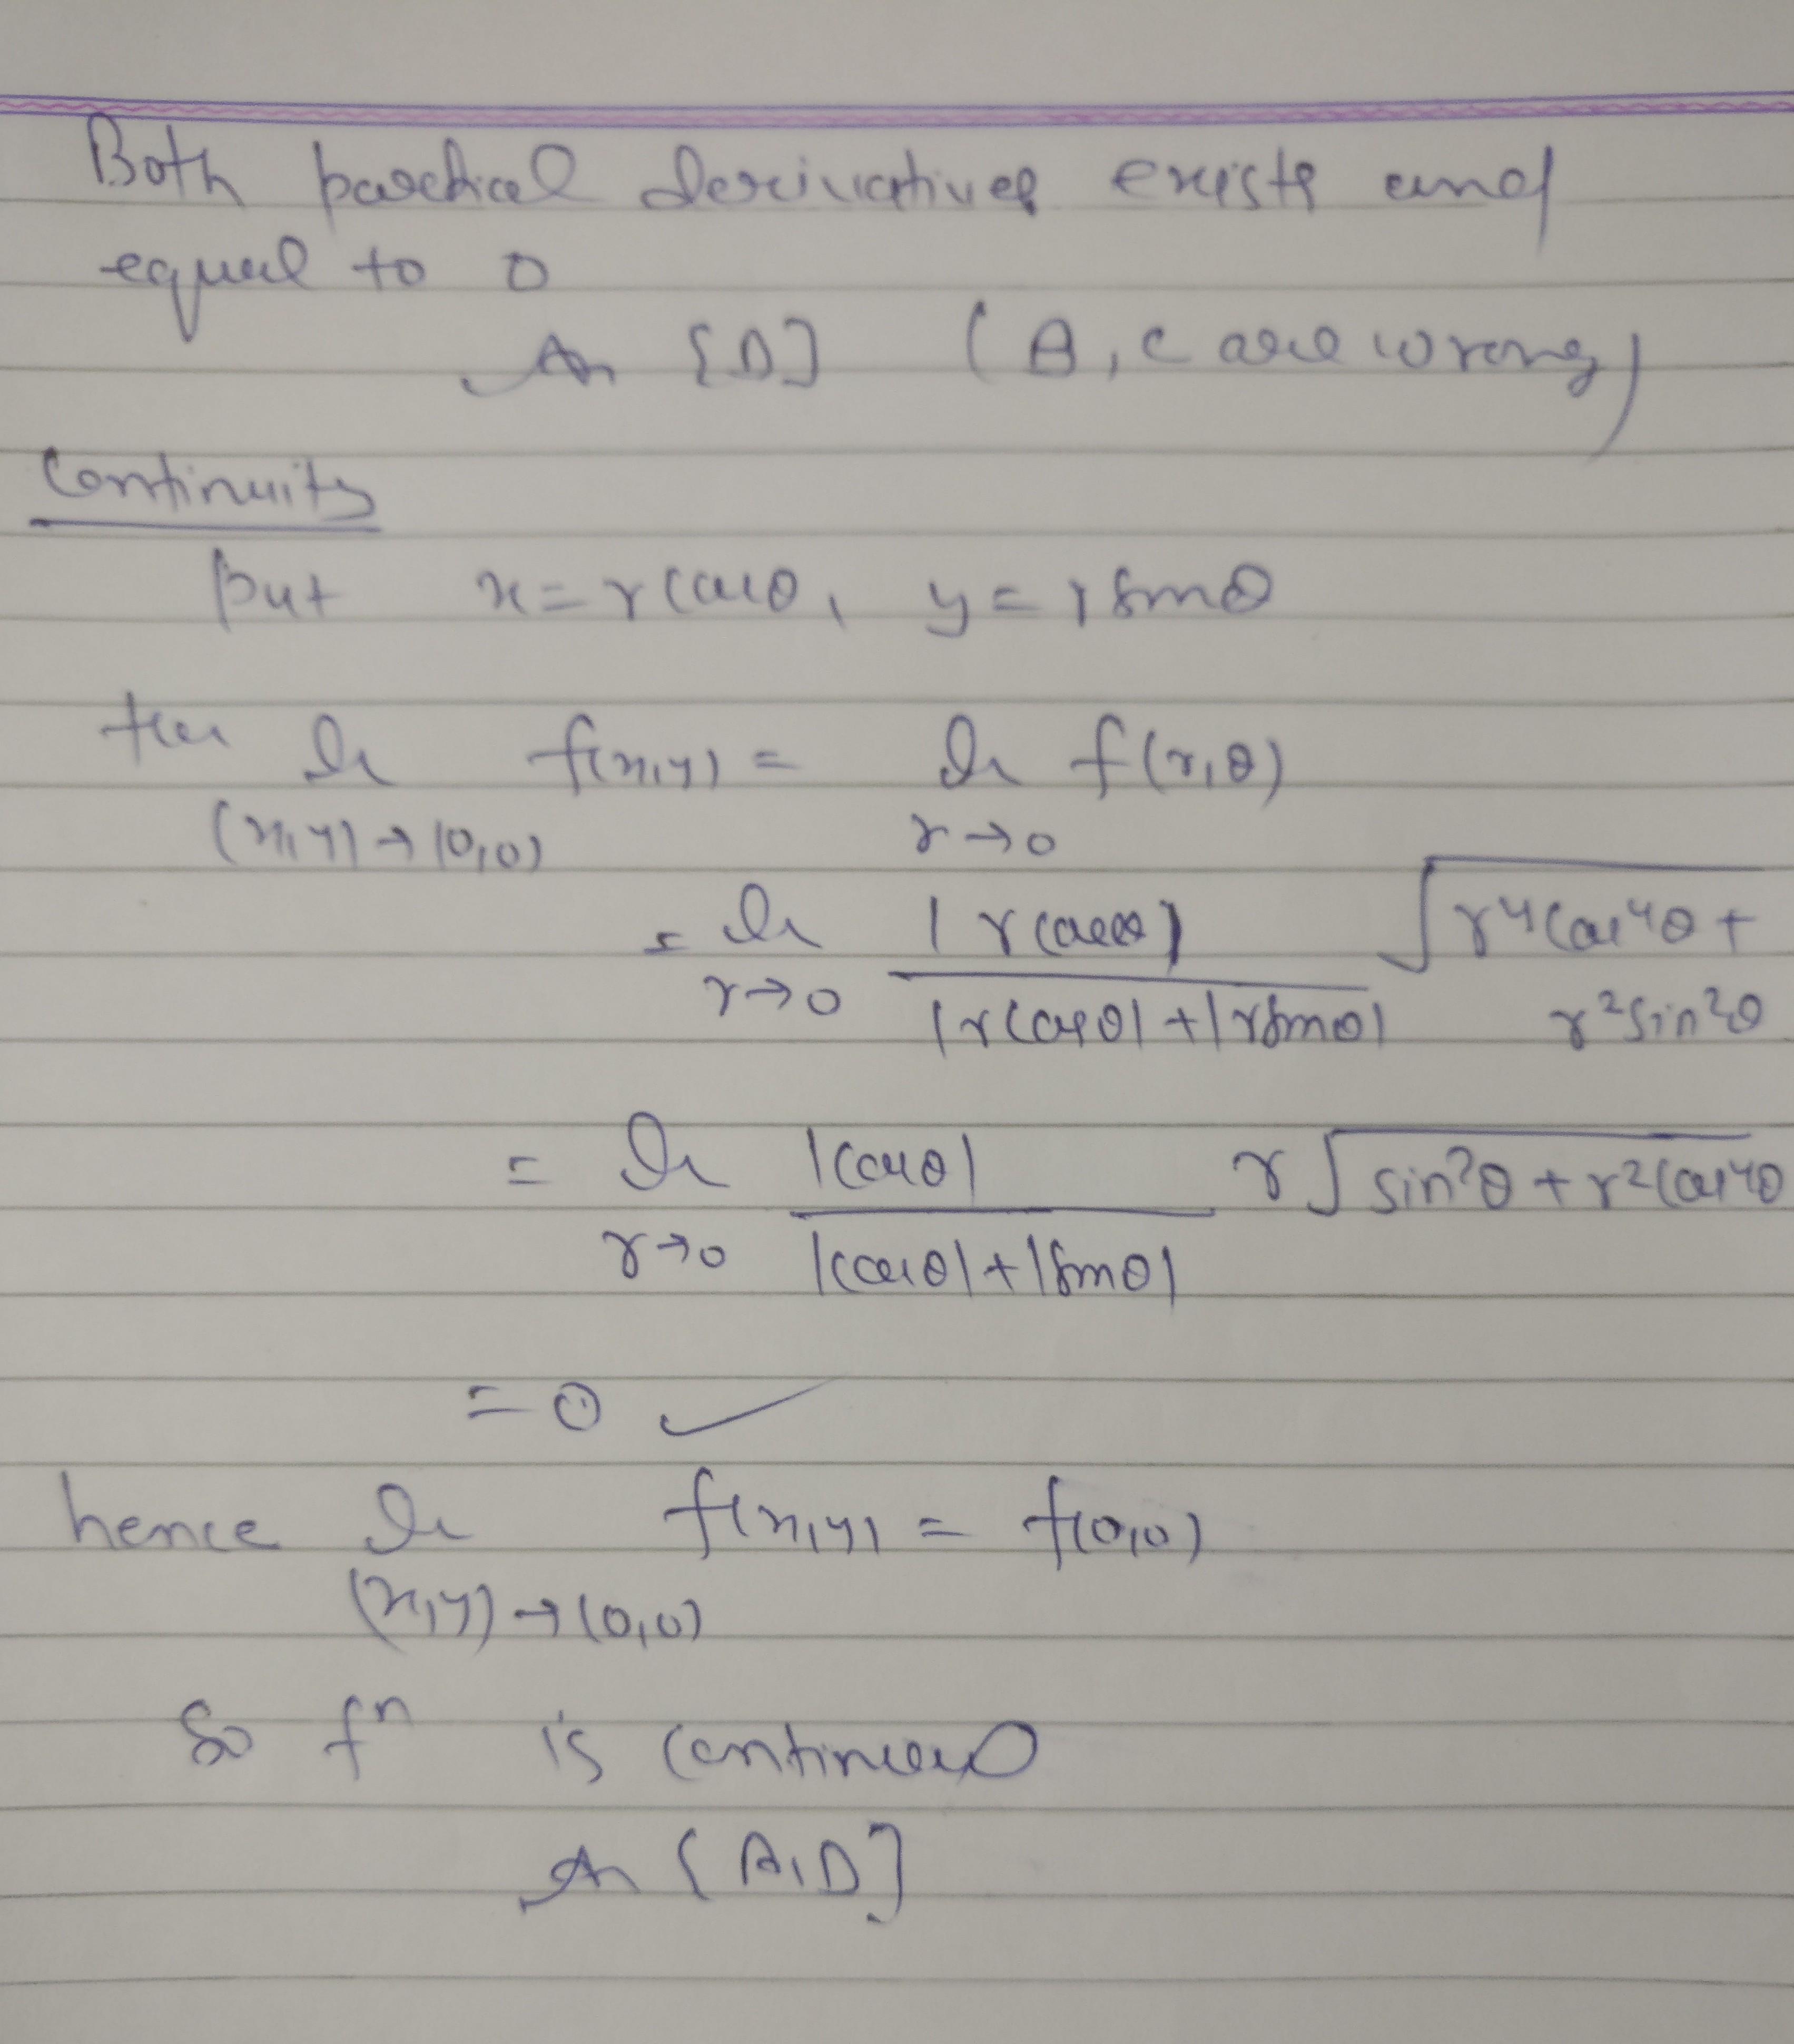 Both partial derivatives exists and
equal to 0
An [D] (B, C are wrong)
Continuity
Put x = r cosθ, y = r sinθ
then lt f(x,y) = lt f(r,θ)
(x,y) → (0,0) r→0
= lt |r cosθ| / (|r cosθ| + |r sinθ|) √(r⁴cos⁴θ + r²sin²θ)
r→0
= lt |cosθ| / (|cosθ| + |sinθ|) r√(sin²θ + r²cos⁴θ)
r→0
= 0 ✓
hence lt f(x,y) = f(0,0)
(x,y) → (0,0)
So fⁿ is continuous
An [A,D]